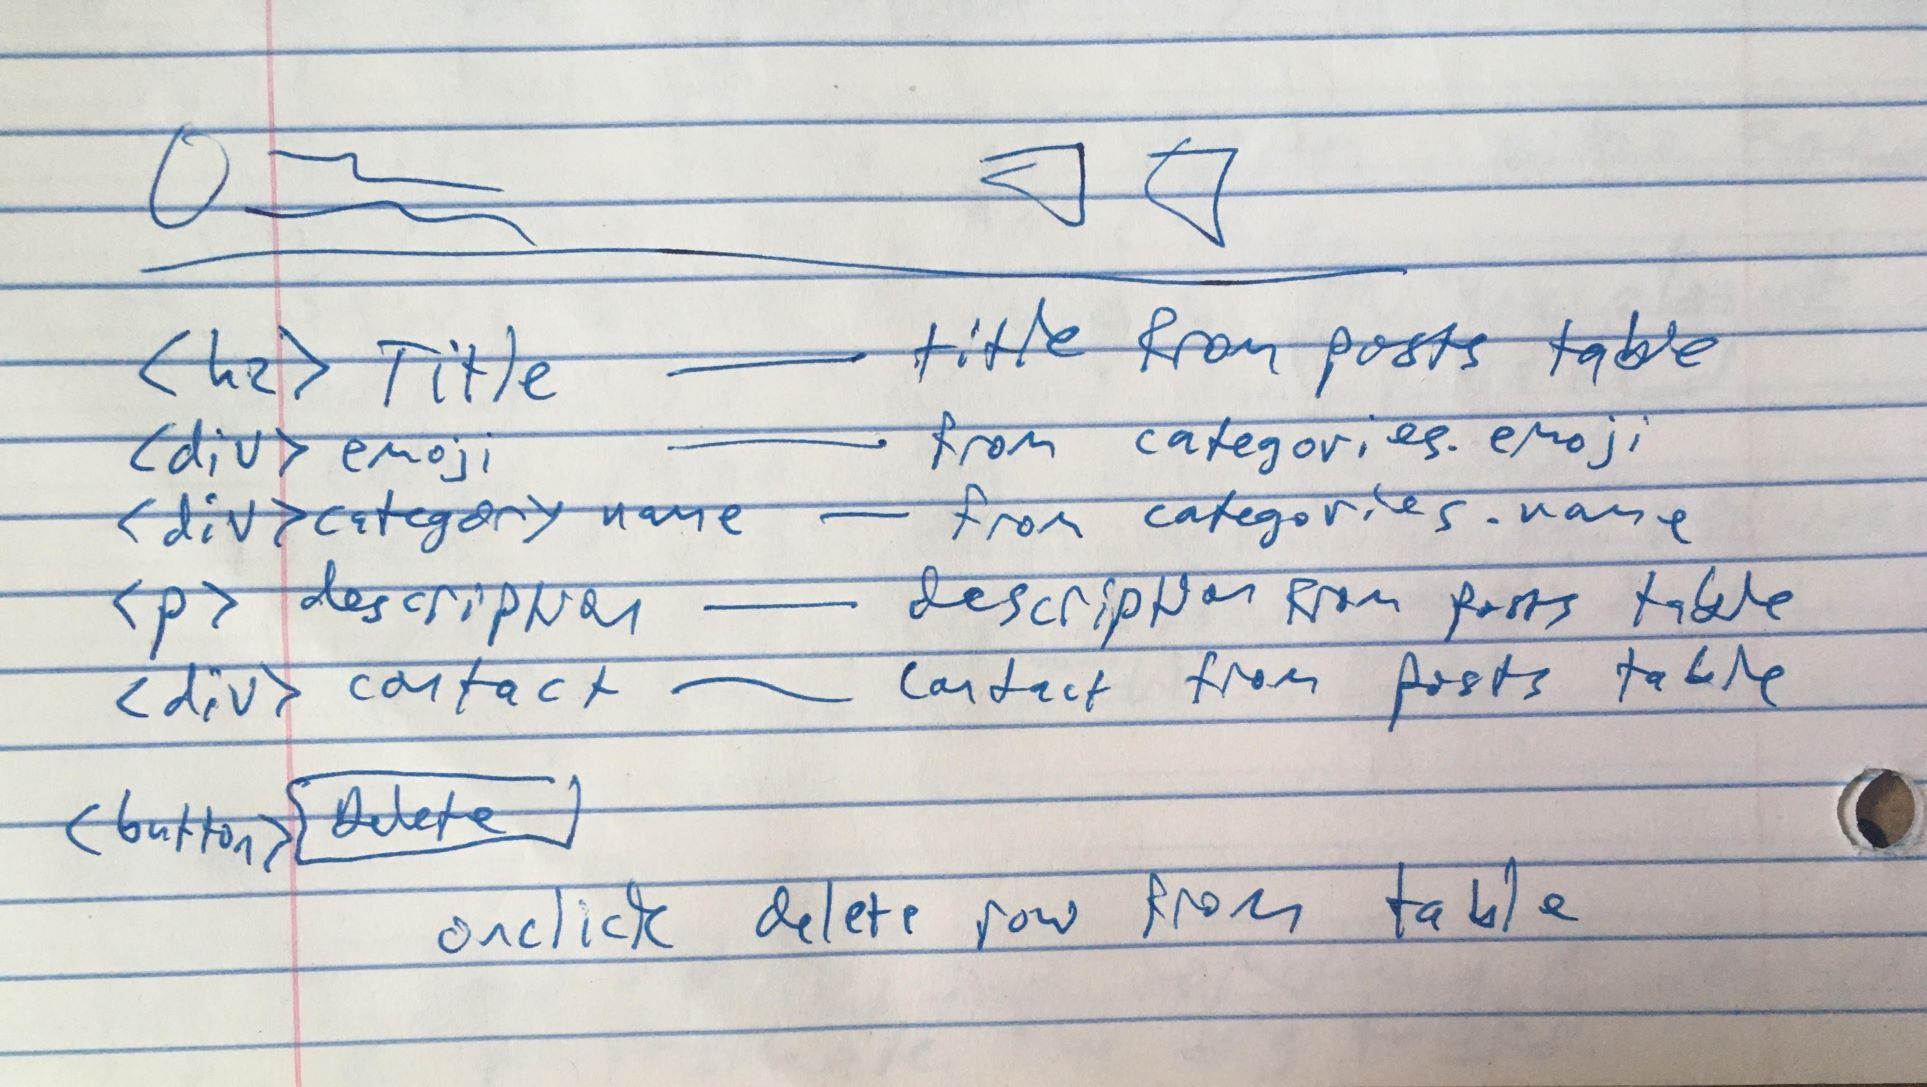 <h2> Title — title from posts table
<div> emoji — from categories.emoji
<div> category name — from categories.name
<p> description — description from posts table
<div> contact — contact from posts table
<button> Delete
onclick delete row from table